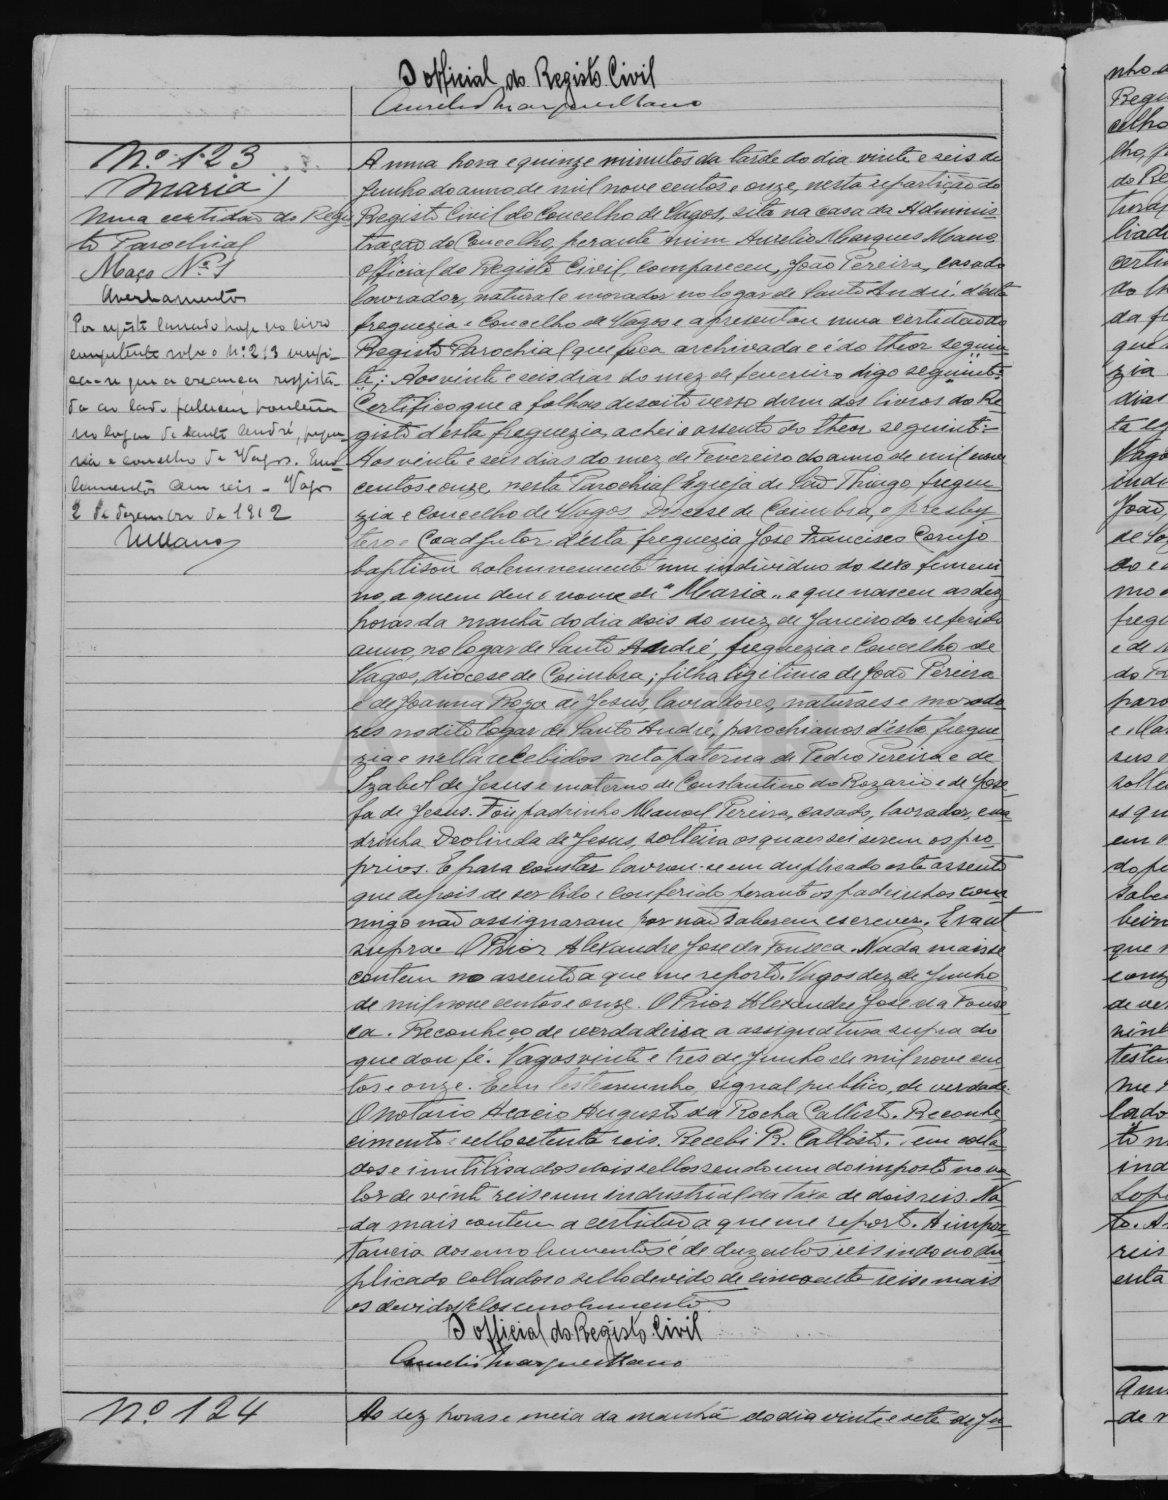 O official do Registo Civil
Aurelio Marques Mano
Nº 123
Maria
Uma certidão do Regis
to Parochial
Maço Nº 1
Averbamento
Por registo lavrado hoje no livro
competente sobre o nº 213 verifi-
ca-se que a creança regista-
da ao lado falleceu hontem
no logar de Santo André, fregue-
sia e concelho de Vagos. Emo-
lumentos cem reis - Vagos
2 de dezembro de 1912
Mano
A uma hora e quinze minutos da tarde do dia vinte e seis de
Junho do anno de mil nove centos e onze, nesta repartição do
Registo Civil do Concelho de Vagos, sita na casa da Adminis-
tração do Concelho, perante mim Aurelio Marques Mano,
official do Registo Civil compareceu, João Pereira, casado
lavrador, natural e morador no logar de Santo André, d'esta
freguezia e Concelho de Vagos e apresentou uma certidão do
Registo Parochial que fica archivada e é do theor seguin-
te: Aos vinte e seis dias do mez de fevereiro digo seguinte:
Certifico que a folhas desoito verso d'um dos livros do Re-
gisto d'esta freguezia, achei o assento do theor seguinte:
Aos vinte e seis dias do mez de Fevereiro do anno de mil nove
centos e onze, nesta Parochial Egreja de São Thiago, fregue-
zia e Concelho de Vagos Diocese de Coimbra, o presby-
tero e Coadjutor d'esta freguezia José Francisco Corujo
baptisou solemnemente um individuo do sexo femeni-
no, a quem deu o nome de "Maria" e que nasceu as dez
horas da manhã do dia dois do mez de Janeiro do referido
anno, no logar de Santo André, freguezia e Concelho de
Vagos, diocese de Coimbra; filha ligitima de João Pereira
e de Joanna Roza de Jesus, lavradores, naturaes e morado-
res no dito logar de Santo André, parochianos d'esta fregue-
zia e nella recebidos neta paterna de Pedro Pereira e de
Izabel de Jesus e materno de Constantino do Rozario e de Jose-
fa de Jesus. Foi padrinho Manoel Pereira, casado, lavrador, e ma-
drinha Deolinda de Jesus, solteira os quaes sei serem os pro-
prios. E para constar lavrou-se em duplicado este assento
que depois de ser lido e conferido perante os padrinhos com-
migo não assignaram por não saberem escrever. Era ut
supra. O Prior Alexandre José da Fonseca. Nada mais se
contem no assento a que me reporto. Vagos dez de Junho
de mil nove centos e onze. O Prior Alexandre José da Fonse-
ca. Reconheço de verdadeira a assignatura supra do
que dou fé. Vagos vinte e tres de Junho de mil nove cen-
tos e onze. Em testemunho, signal publico, de verdade.
O notario Acacio Augusto da Rocha Callisto. Reconhe
cimento e sello setenta reis. Recebi R. Callisto. Tem colla-
dos e inutilisados dois sellos sendo um do imposto no va-
lor de vinte reis e um industrial da taxa de dois reis. Na-
da mais contem a certidão a que me reporto. A impor-
tancia dos emolumentos é de duzentos reis indo no du-
plicado collados o sello devido de cincoenta reis e mais
os devidos pelos emolumentos.
O official do Registo Civil
Aurelio Marques Mano
Nº 124
As dez horas e meia da manhã do dia vinte e sete de Ju-